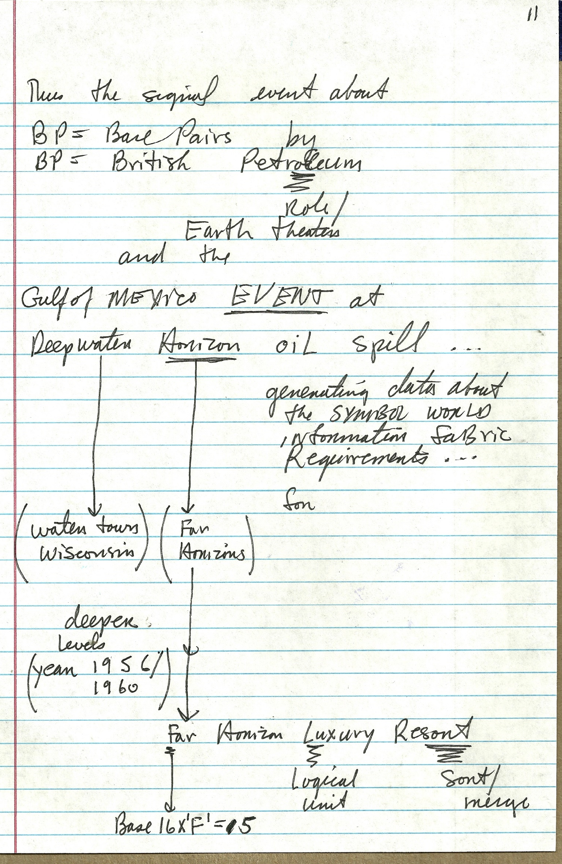 11
Thus the signal event about
BP = Base Pairs by
BP = British Petroleum
Role/
Earth theaters
and the
Gulf of MEXico EVENT at
Deepwater Horizon oiL spill ...
generating data about
the SYMBOL WORLD
information FaBric
Requirements ...
for
(water tours Wisconsin) (Far Horizons)
deeper
Levels
(year 1956/
1960)
Far Horizon Luxury Resort
Logical unit
Sort/
merge
Base 16 x'F' = 15